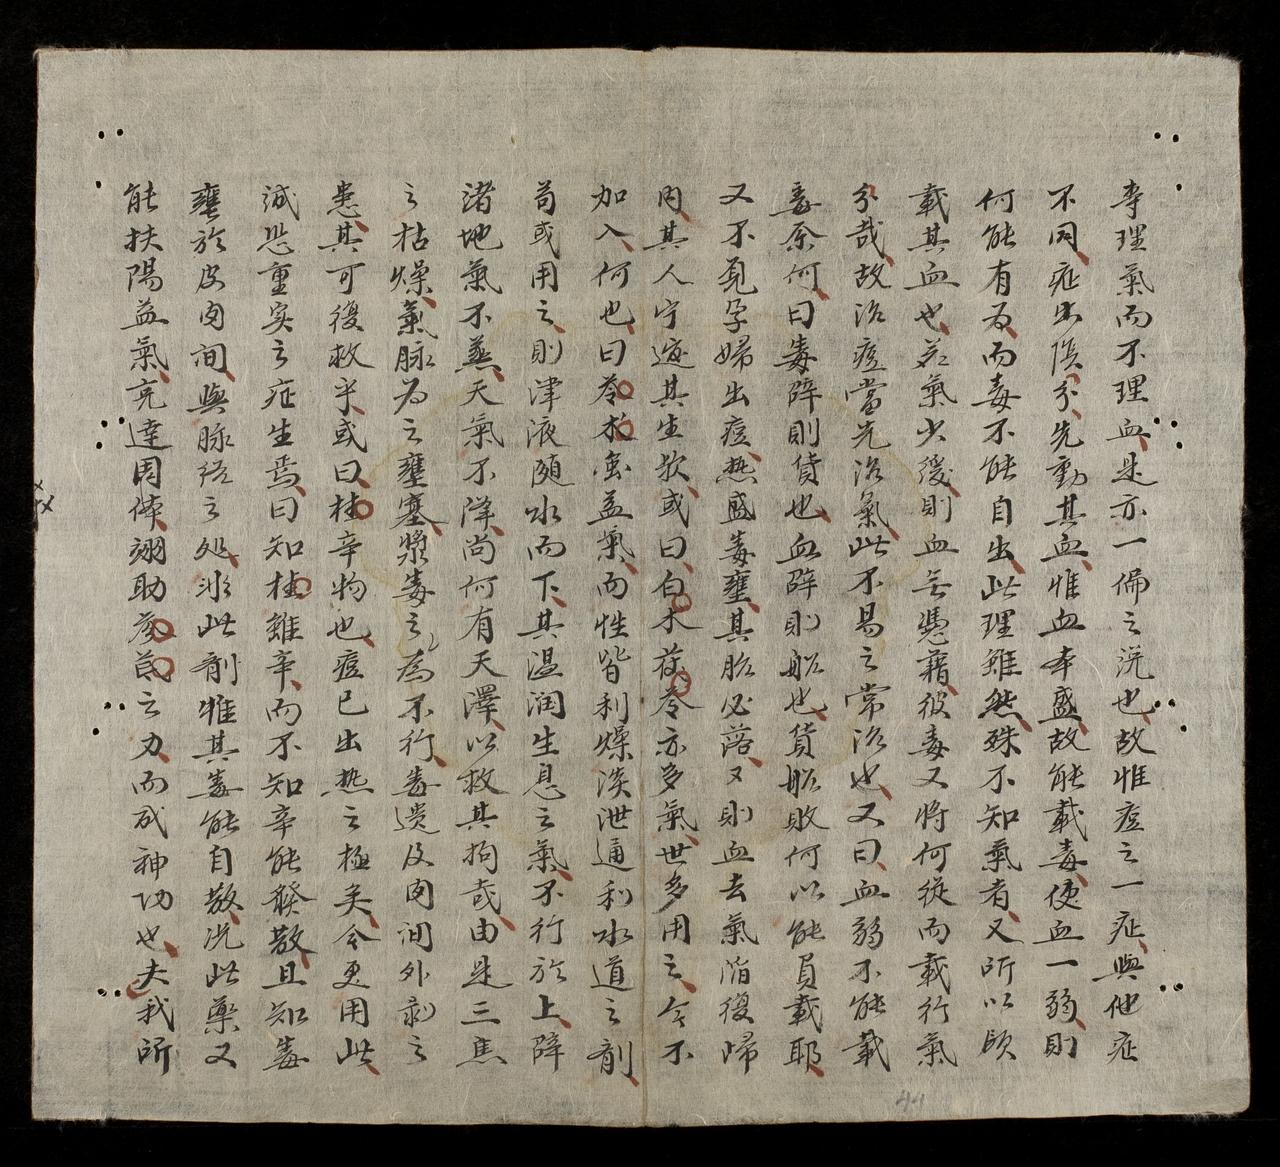 專理氣而不理血是亦一偏之説也故惟痘之一症與他症
不同症出候分先動其血惟血本盛故能載毒使血一弱則
何能有为而毒不能自出此理雖然殊不知氣者又所以領
載其血也若氣少緩則血無憑藉彼毒又將何從而載行氣
分哉故治痘當先治氣此不易之常治也又曰血弱不能載
毒奈何曰毒辟則貨也血辟則船也貨船敗何以能負載耶
又不見孕婦出痘热盛毒壅其胎必落又則血去氣脂復归
内其人宁遂其生欤或曰白术茯苓亦多氣世多用之今不
加入何也曰苓术虽益氣而性皆利燥淡泄通利水道之剤
苟或用之則津液随水而下其温润生息之氣不行於上降
渚地氣不蒸天氣不降尚何有天澤以救其拘哉由是三焦
之枯燥氣脉为之壅塞漿毒之為不行毒遗及肉間外剥之
患其可復救乎或曰桂辛物也痘已出热之極矣今更用此
誠恐重实之症生焉曰知桂雖辛而不知辛能發散且知毒
壅於皮肉间與脉络之处非此剤惟其毒能自散况此藥又
能扶陽益氣充達周体翊助參芪之力而成神功也夫我所